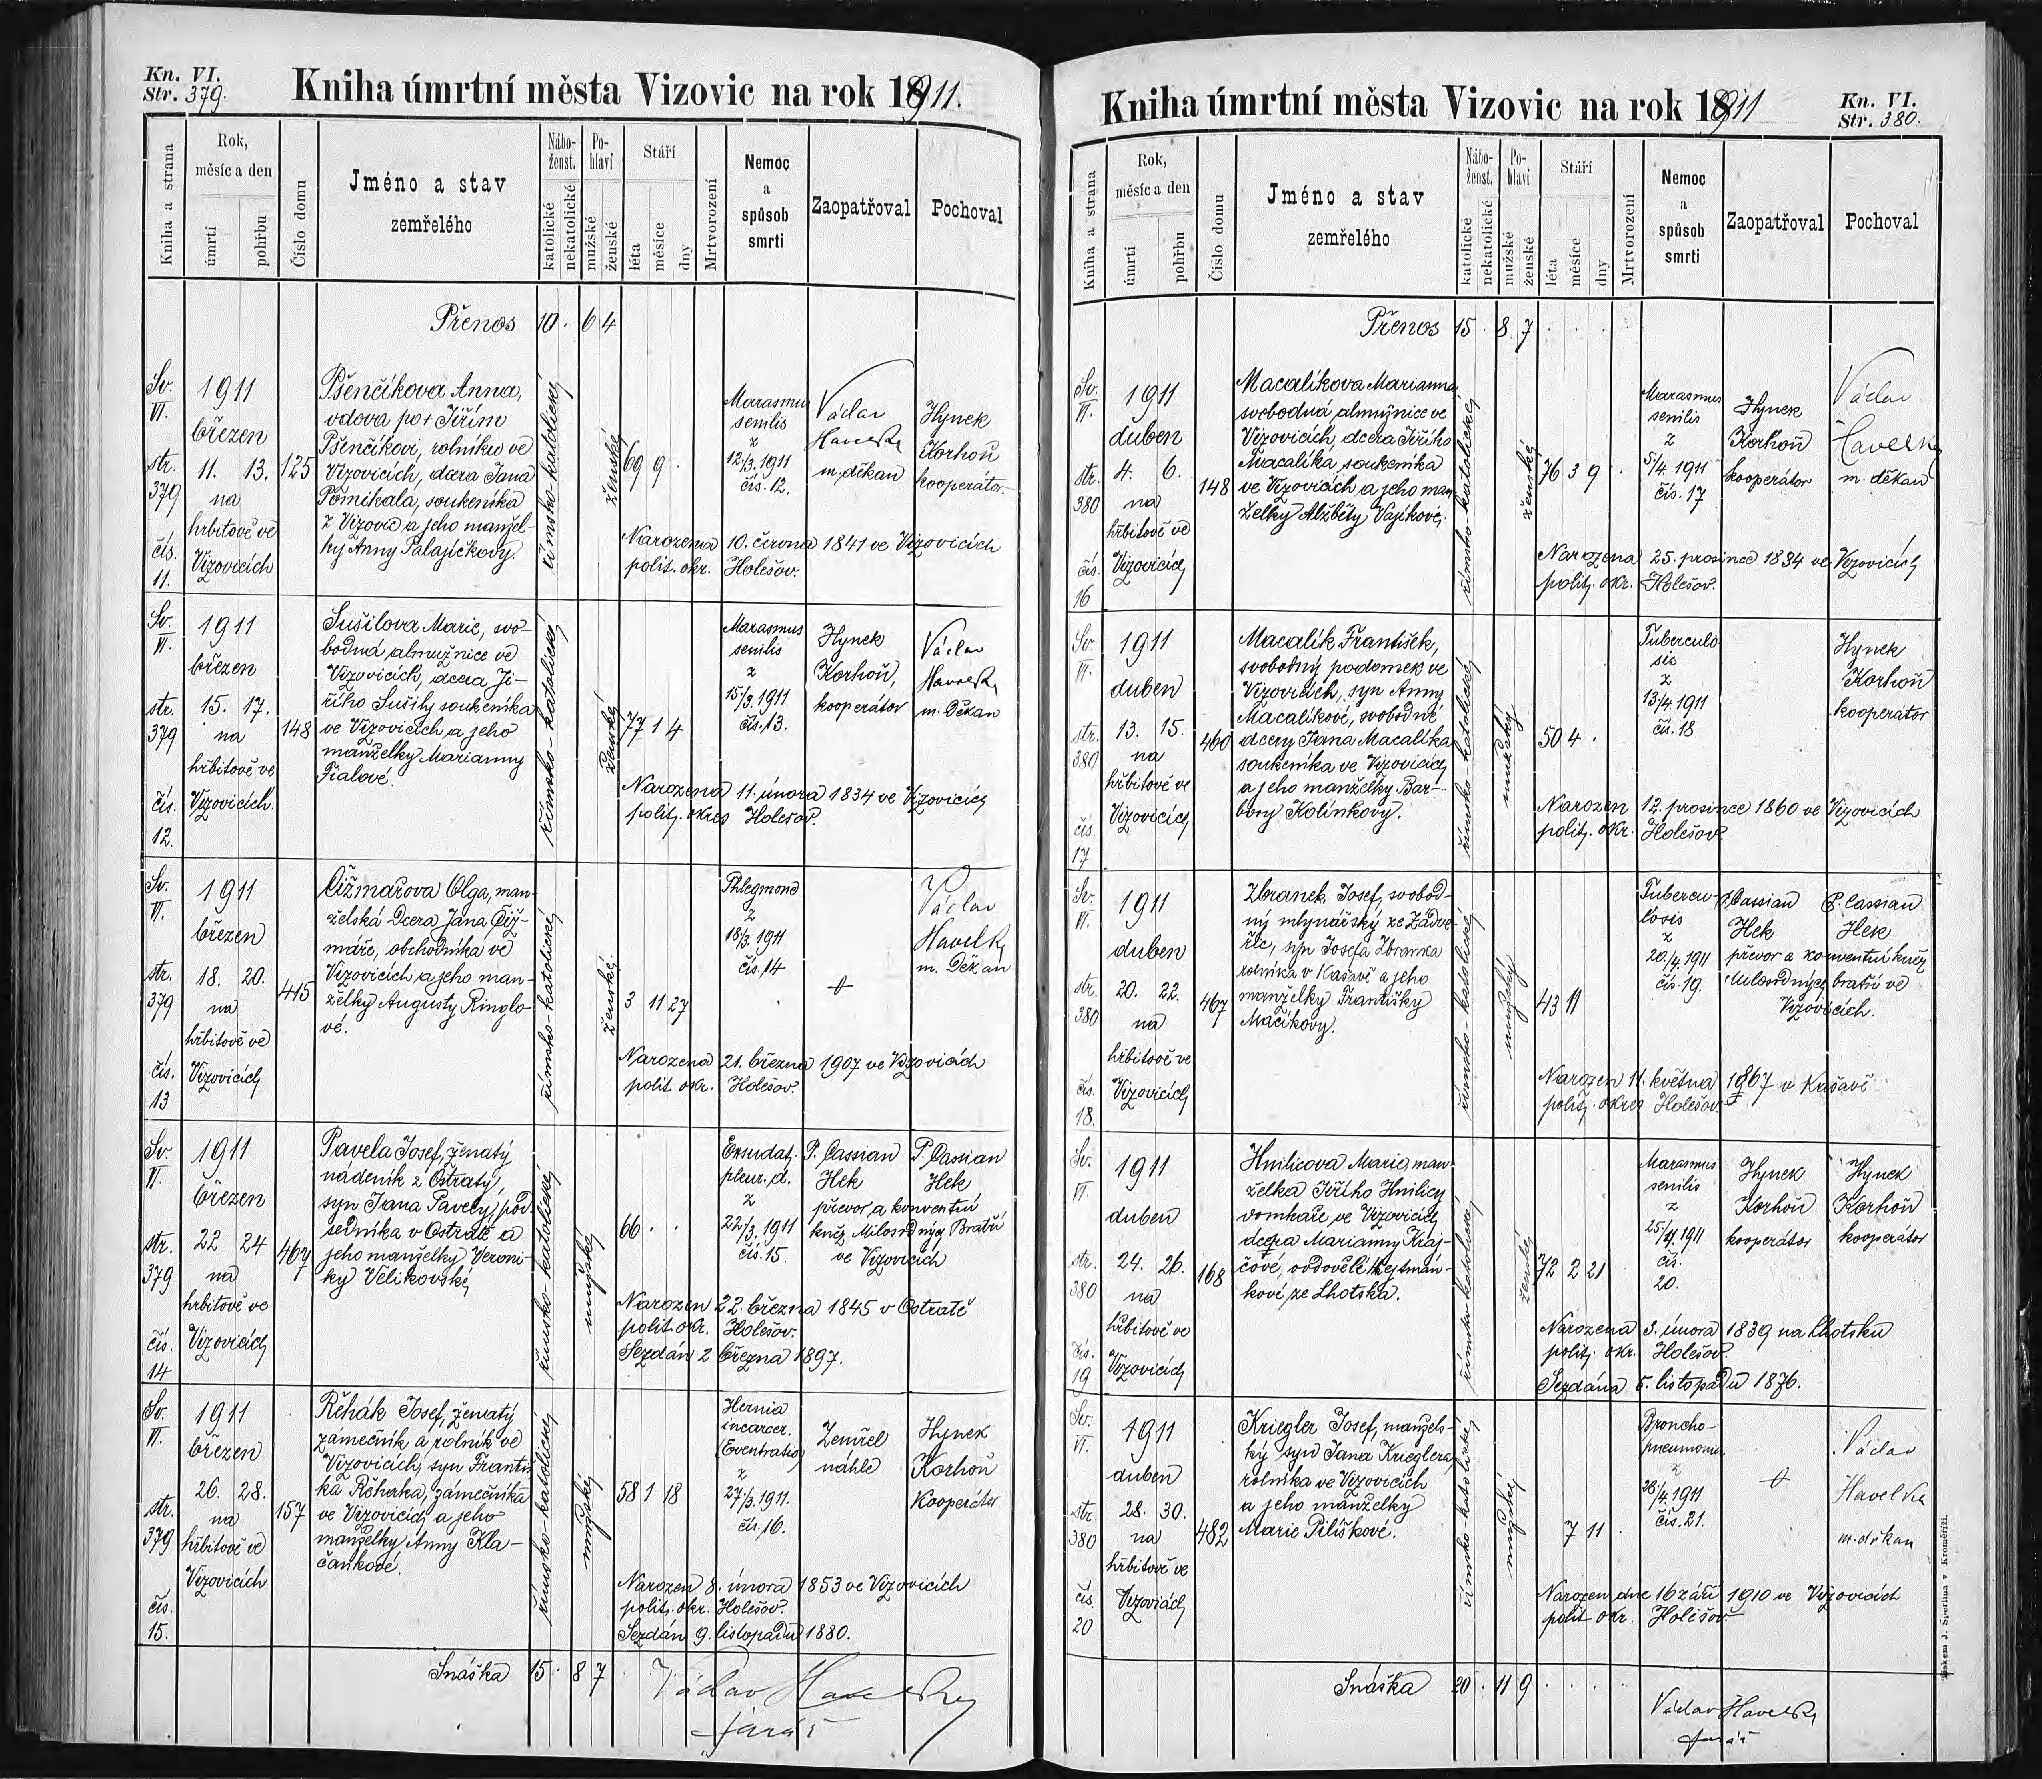 Kn. VI.
Str. 379.
Kniha úmrtní města Vizovic na rok 1911.
Kniha a strana
Rok,
měsíc a den
úmrtí
pohřbu
Číslo domu
Jméno a stav
zemřelého
Nábo-
ženst.
katolické
nekatolické
Po-
hlaví
mužské
ženské
Stáří
léta
měsíce
dny
Mrtvorození
Nemoc
a
spůsob
smrti
Zaopatřoval
Pochoval
Přenos 10 . 6 4
Sv.
VI.
str.
379
čís.
11.
1911
březen
11. 13.
na
hřbitově ve
Vizovicích
125
Pšenčíkova Anna,
vdova po + Jiřím
Pšenčíkovi, rolníku ve
Vizovicích, dcera Jana
soukeníka
z Vizovic a jeho manžel-
ky Anny Palajíčkovy.
římsko-katolické
ženské
69 9 .
Marasmus
senilis
z
12/3. 1911
čís. 12.
Václav
Havelka
m. děkan
Hynek
Korhoň
kooperátor
Narozena 10. června 1841 ve Vizovicích
polit. okr. Holešov.
Sv.
VI.
str.
379
čís.
12.
1911
březen
15. 17.
na
hřbitově ve
Vizovicích.
148
Sušilova Marie, svo-
bodná almužnice ve
Vizovicích, dcera Ji-
řího Sušily soukeníka
ve Vizovicích a jeho
manželky Marianny
Fialové.
římsko-katolické
ženské
77 1 4
Marasmus
senilis
z
15/3. 1911
čís. 13.
Hynek
Korhoň,
kooperátor
Václav
Havelka
m. Děkan
Narozena 11. února 1834 ve Vizovicích
polit. okres Holešov.
Sv.
VI.
str.
379
čís.
13
1911
březen
18. 20.
na
hřbitově ve
Vizovicích
415
Čižmařova Olga, man-
želská dcera Jana Čiž-
máře, obchodníka ve
Vizovicích a jeho man-
želky Augusty Ringlo-
vé.
římsko-katolické
ženské
3 11 27
Phlegmona
z
18/3. 1911
čís. 14
Václav
Havelka
m. Děkan
Narozena 21. března 1907 ve Vizovicích
polit. okr. Holešov.
Sv.
VI.
str.
379
čís.
14
1911
březen
22 24
na
hřbitově ve
Vizovicích
467
Pavela Josef, ženatý
nádeník z Ostratý,
syn Jana Pavely, pod
sedníka v Ostratě a
jeho manželky Veroni-
ky Velikovské.
římsko-katolické
mužské
66 . .
Exsudat.
pleur. d.
z
22/3. 1911
čís. 15.
P. Cassian
Hek
P. Cassian
Hek
převor a konventní
kněz Milosrdných Bratří
ve Vizovicích
Narozen 22 března 1845 v Ostratě
polit. okr. Holešov.
Sezdán 2 března 1897.
Sv.
VI.
str.
379
čís.
15.
1911
březen
26. 28.
na
hřbitově ve
Vizovicích
157
Řehák Josef, ženatý
zámečník a rolník ve
Vizovicích, syn Františ
ka Řeháka, zámečníka
ve Vizovicích a jeho
manželky Anny Kla-
čankové.
římsko-katolické
mužské
58 1 18
Hernia
incarcer.
(Eventratio)
z
27/3. 1911.
čís. 16.
Zemřel
náhle
Hynek
Korhoň
Kooperátor
Narozen 8. února 1853 ve Vizovicích
polit. okr. Holešov.
Sezdán 9. listopadu 1880.
Snáška 15 . 8 7
Václav Havelka
farář
Kniha úmrtní města Vizovic na rok 1911
Kn. VI.
Str. 380.
Kniha a strana
Rok,
měsíc a den
úmrtí
pohřbu
Číslo domu
Jméno a stav
zemřelého
Nábo-
ženst.
katolické
nekatolické
Po-
hlaví
mužské
ženské
Stáří
léta
měsíce
dny
Mrtvorození
Nemoc
a
spůsob
smrti
Zaopatřoval
Pochoval
Přenos 15 . 8 7 . . .
Sv.
VI.
str.
380
čís.
16
1911
duben
4. 6.
na
hřbitově ve
Vizovicích
148
Macalíkova Marianna
svobodná almužnice ve
Vizovicích, dcera Jiřího
Macalíka soukeníka
ve Vizovicích a jeho man
želky Alžběty Vajíkové.
římsko-katolické
ženské
76 3 9
Marasmus
senilis
z
5/4. 1911
čís. 17
Hynek
Korhoň
kooperátor
Václav
Havelka
m. děkan
Narozena 25. prosince 1834 ve Vizovicích
polit. okr. Holešov.
Sv.
VI.
str.
380
čís.
17
1911
duben
13. 15.
na
hřbitově ve
Vizovicích
460
Macalík František,
svobodný podomek ve
Vizovicích, syn Anny
Macalíkové, svobodné
dcery Jana Macalíka
soukeníka ve Vizovicích
a jeho manželky Bar-
bory Kolínkovy.
římsko-katolické
mužské
50 4 .
Tuberculo
sis
z
13/4 1911
čís. 18
Hynek
Korhoň
kooperator
Narozen 12. prosince 1860 ve Vizovicích
polit. okr. Holešov.
Sv.
VI.
str.
380
čís.
18.
1911
duben
20. 22.
na
hřbitově ve
Vizovicích
467
Zbranek Josef, svobod-
ný mlynářský ze Zádve-
řic, syn Josefa Zbranka
rolníka v Kašavě a jeho
manželky Františky
Mačíkovy.
římsko-katolické
mužské
43 11
Tubercu-
losis
z
20./4. 1911
čís. 19.
P. Cassian
Hek
P. Cassian
Hek
převor a konventní kněz
Milosrdných bratří ve
Vizovicích.
Narozen 11. května 1867 v Kašavě
polit. okres Holešov.
Sv.
VI.
str.
380
čís.
19
1911
duben
24. 26.
na
hřbitově ve
Vizovicích
168
Hnilicova Marie, man-
želka Jiřího Hnilicy
domkaře ve Vizovicích,
dcera Marianny Kraj-
čové, ovdovělé Hejtmán-
kové ze Lhotska.
římsko-katolické
ženské
72 2 21
Marasmus
senilis
z
25/4. 1911
čís.
20.
Hynek
Korhoň
kooperátor
Hynek
Korhoň
kooperátor
Narozena 3. února 1839 na Lhotsku
polit. okr. Holešov.
Sezdána 5. listopadu 1876.
Sv.
VI.
str.
380
čís.
20
1911
duben
28. 30.
na
hřbitově ve
Vizovicích
482
Kriegler Josef, manžels-
ký syn Jana Krieglera,
rolníka ve Vizovicích
a jeho manželky
Marie Pilíškové.
římsko-katolické
mužské
7 11
Broncho-
pneumonie
z
28/4. 1911
čís. 21.
Václav
Havelka
m. děkan
Narozen dne 16 září 1910 ve Vizovicích
polit. okr. Holešov
Snáška 20 . 11 9 . . . .
Václav Havelka
farář
Tiskem J. Sperlina v Kroměříži.